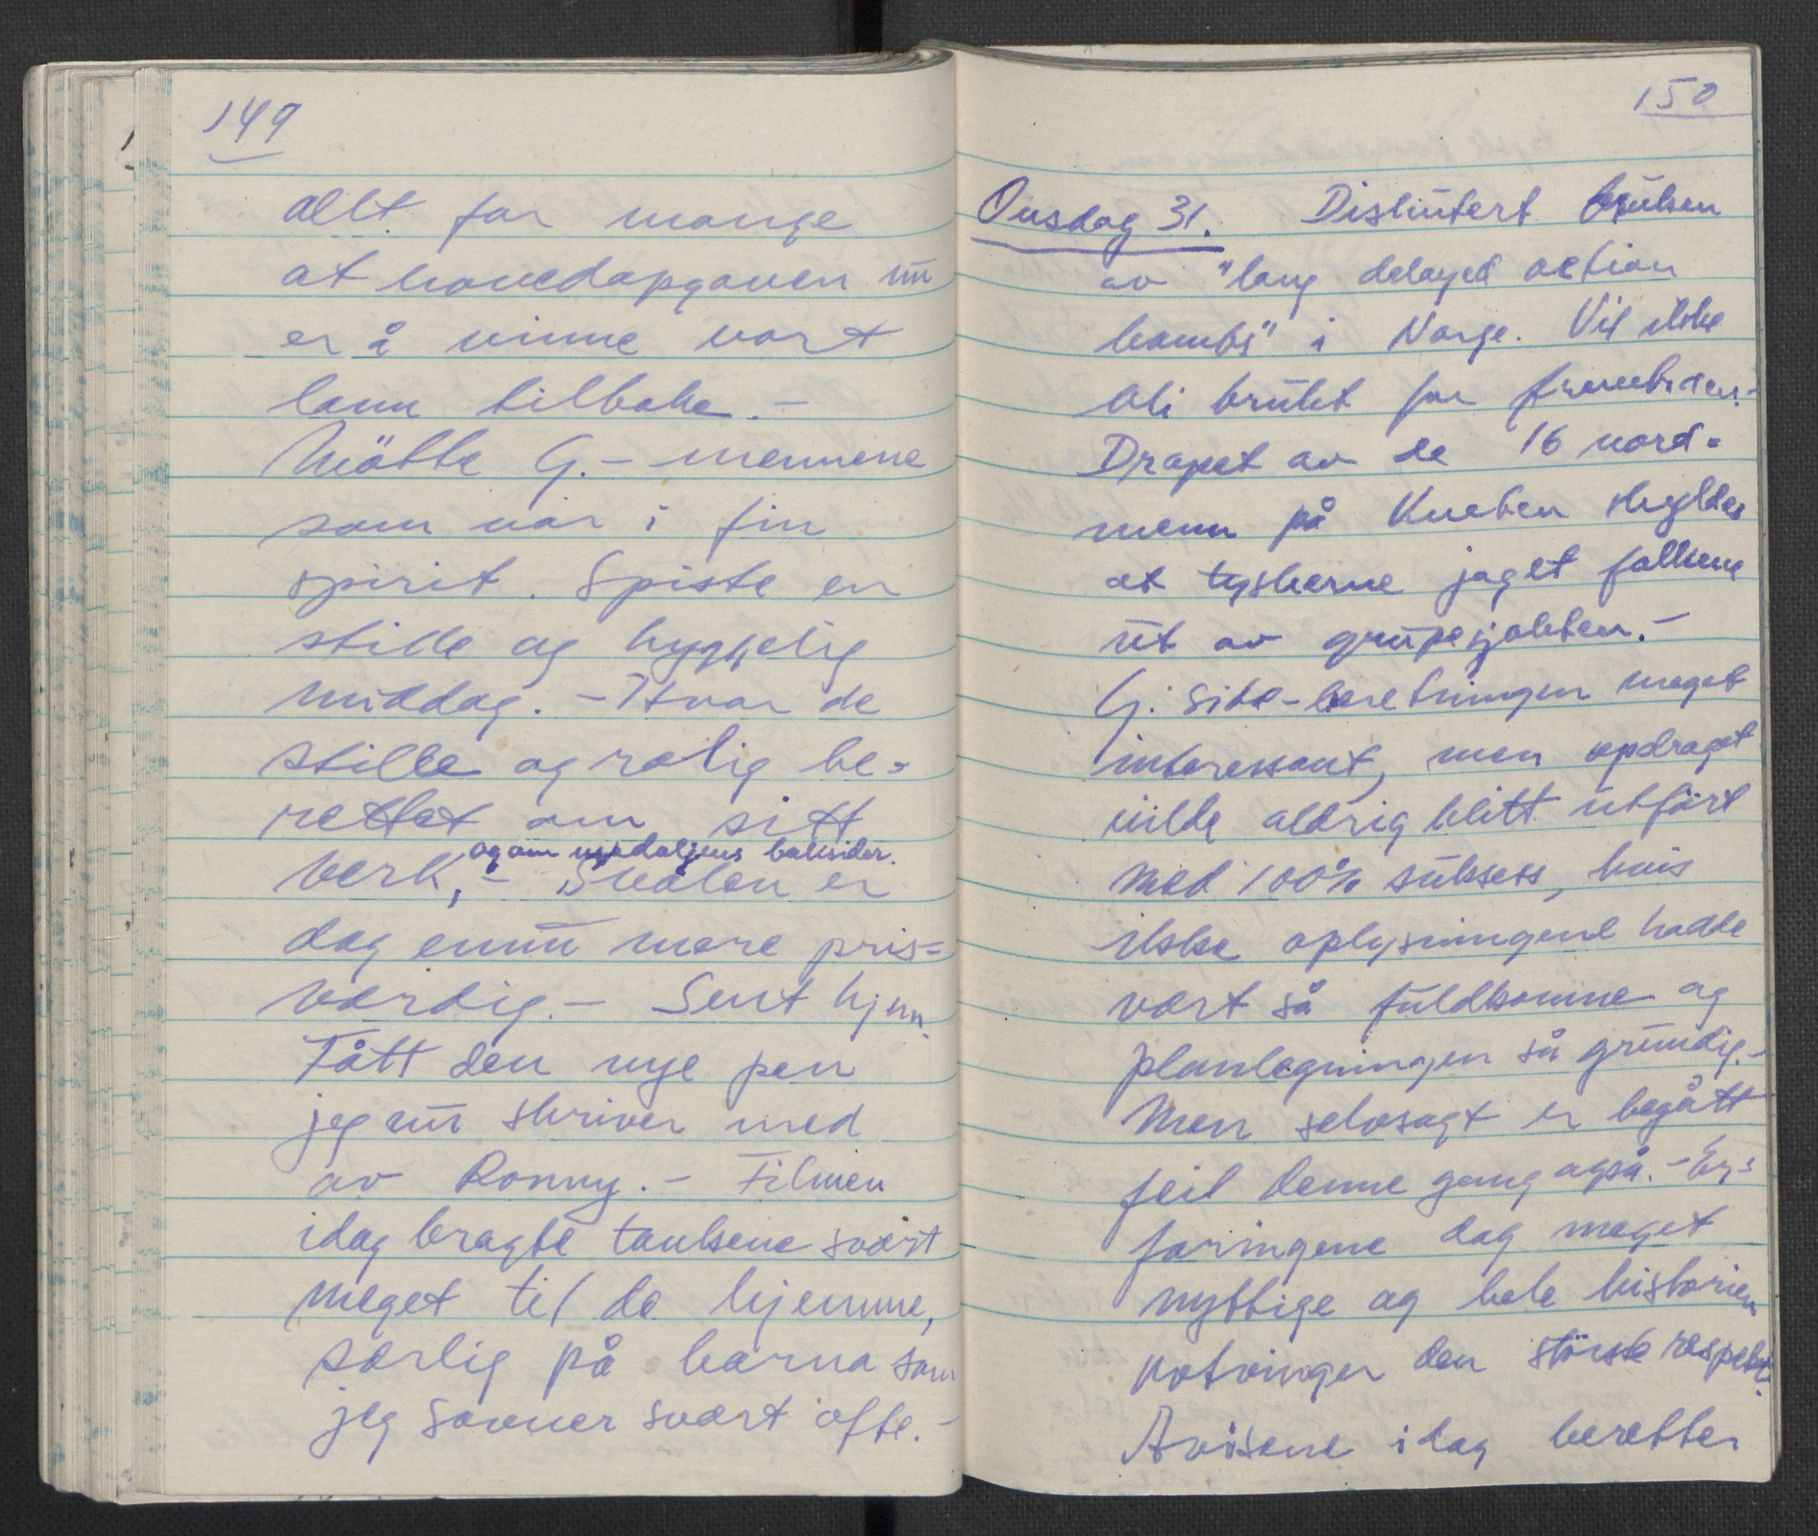 149
allt for mange
at hovedopgaven nu
er å vinne vort
lann tilbake. -
Mötte G. - mennene
som var i fin
spirit. Spiste en
stille og hyggelig
middag. - Hvor de
stille og rolig be=
rettet om sitt
og om medaljens baksider.
verk, - Skålen er
dog ennu mere pris=
verdig. - Sent hjem.
Fått den nye pen
jeg nu skriver med
av Ronny. - Filmen
idag bragte tankene svært
meget til de hjemme,
særlig på barna som
jeg savner svært ofte. -
150
Onsdag 31. Diskutert bruken
av "long delayed action
bombs" i Norge. Vil ikke
bli brukt for fremtiden. -
Drapet av de 16 nord=
menn på Kneben skyldes
at tyskerne jaget folkene
ut av grupesjakten. -
G. Side-beretningen meget
interessant, men opdraget
vilde aldrig blitt utfört
med 100% suksess, hvis
ikke oplysningene hadde
vært så fuldkomne og
planlegningen så grundig. -
Men selvsagt er begått
feil denne gang også. - Er=
faringene dog meget
nyttige og hele historien
avtvinger den störste respekt.
Avisene idag beretter